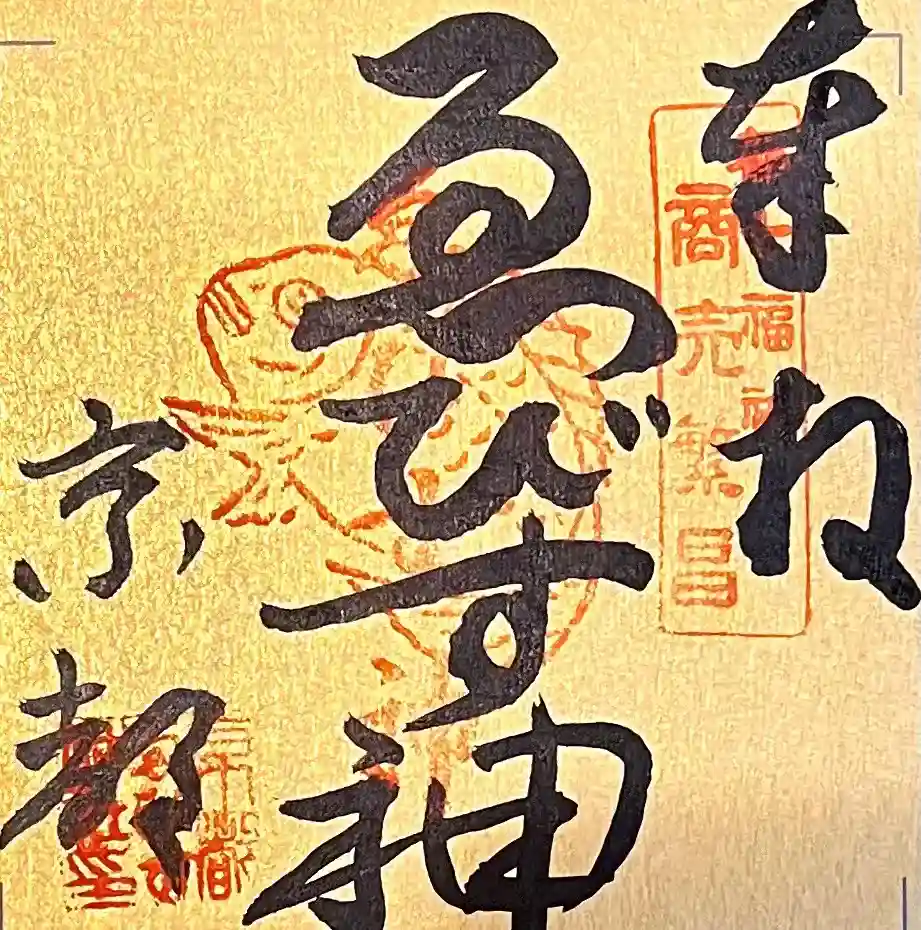 奉拝
商売繁昌
ゑびす神
京都